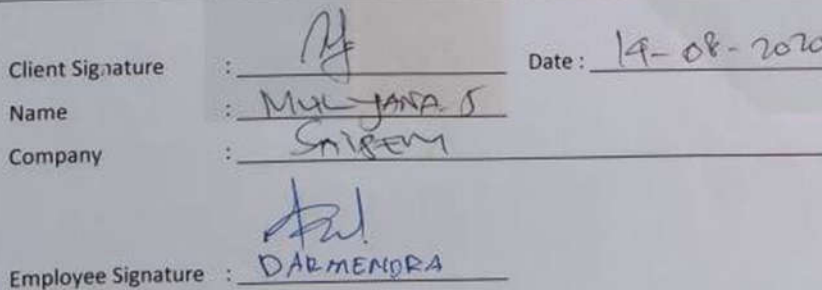 Client Signature : Date : 14-08-2020
Name : MULYANA S
Company : SAIPEM
Employee Signature : DARMENDRA